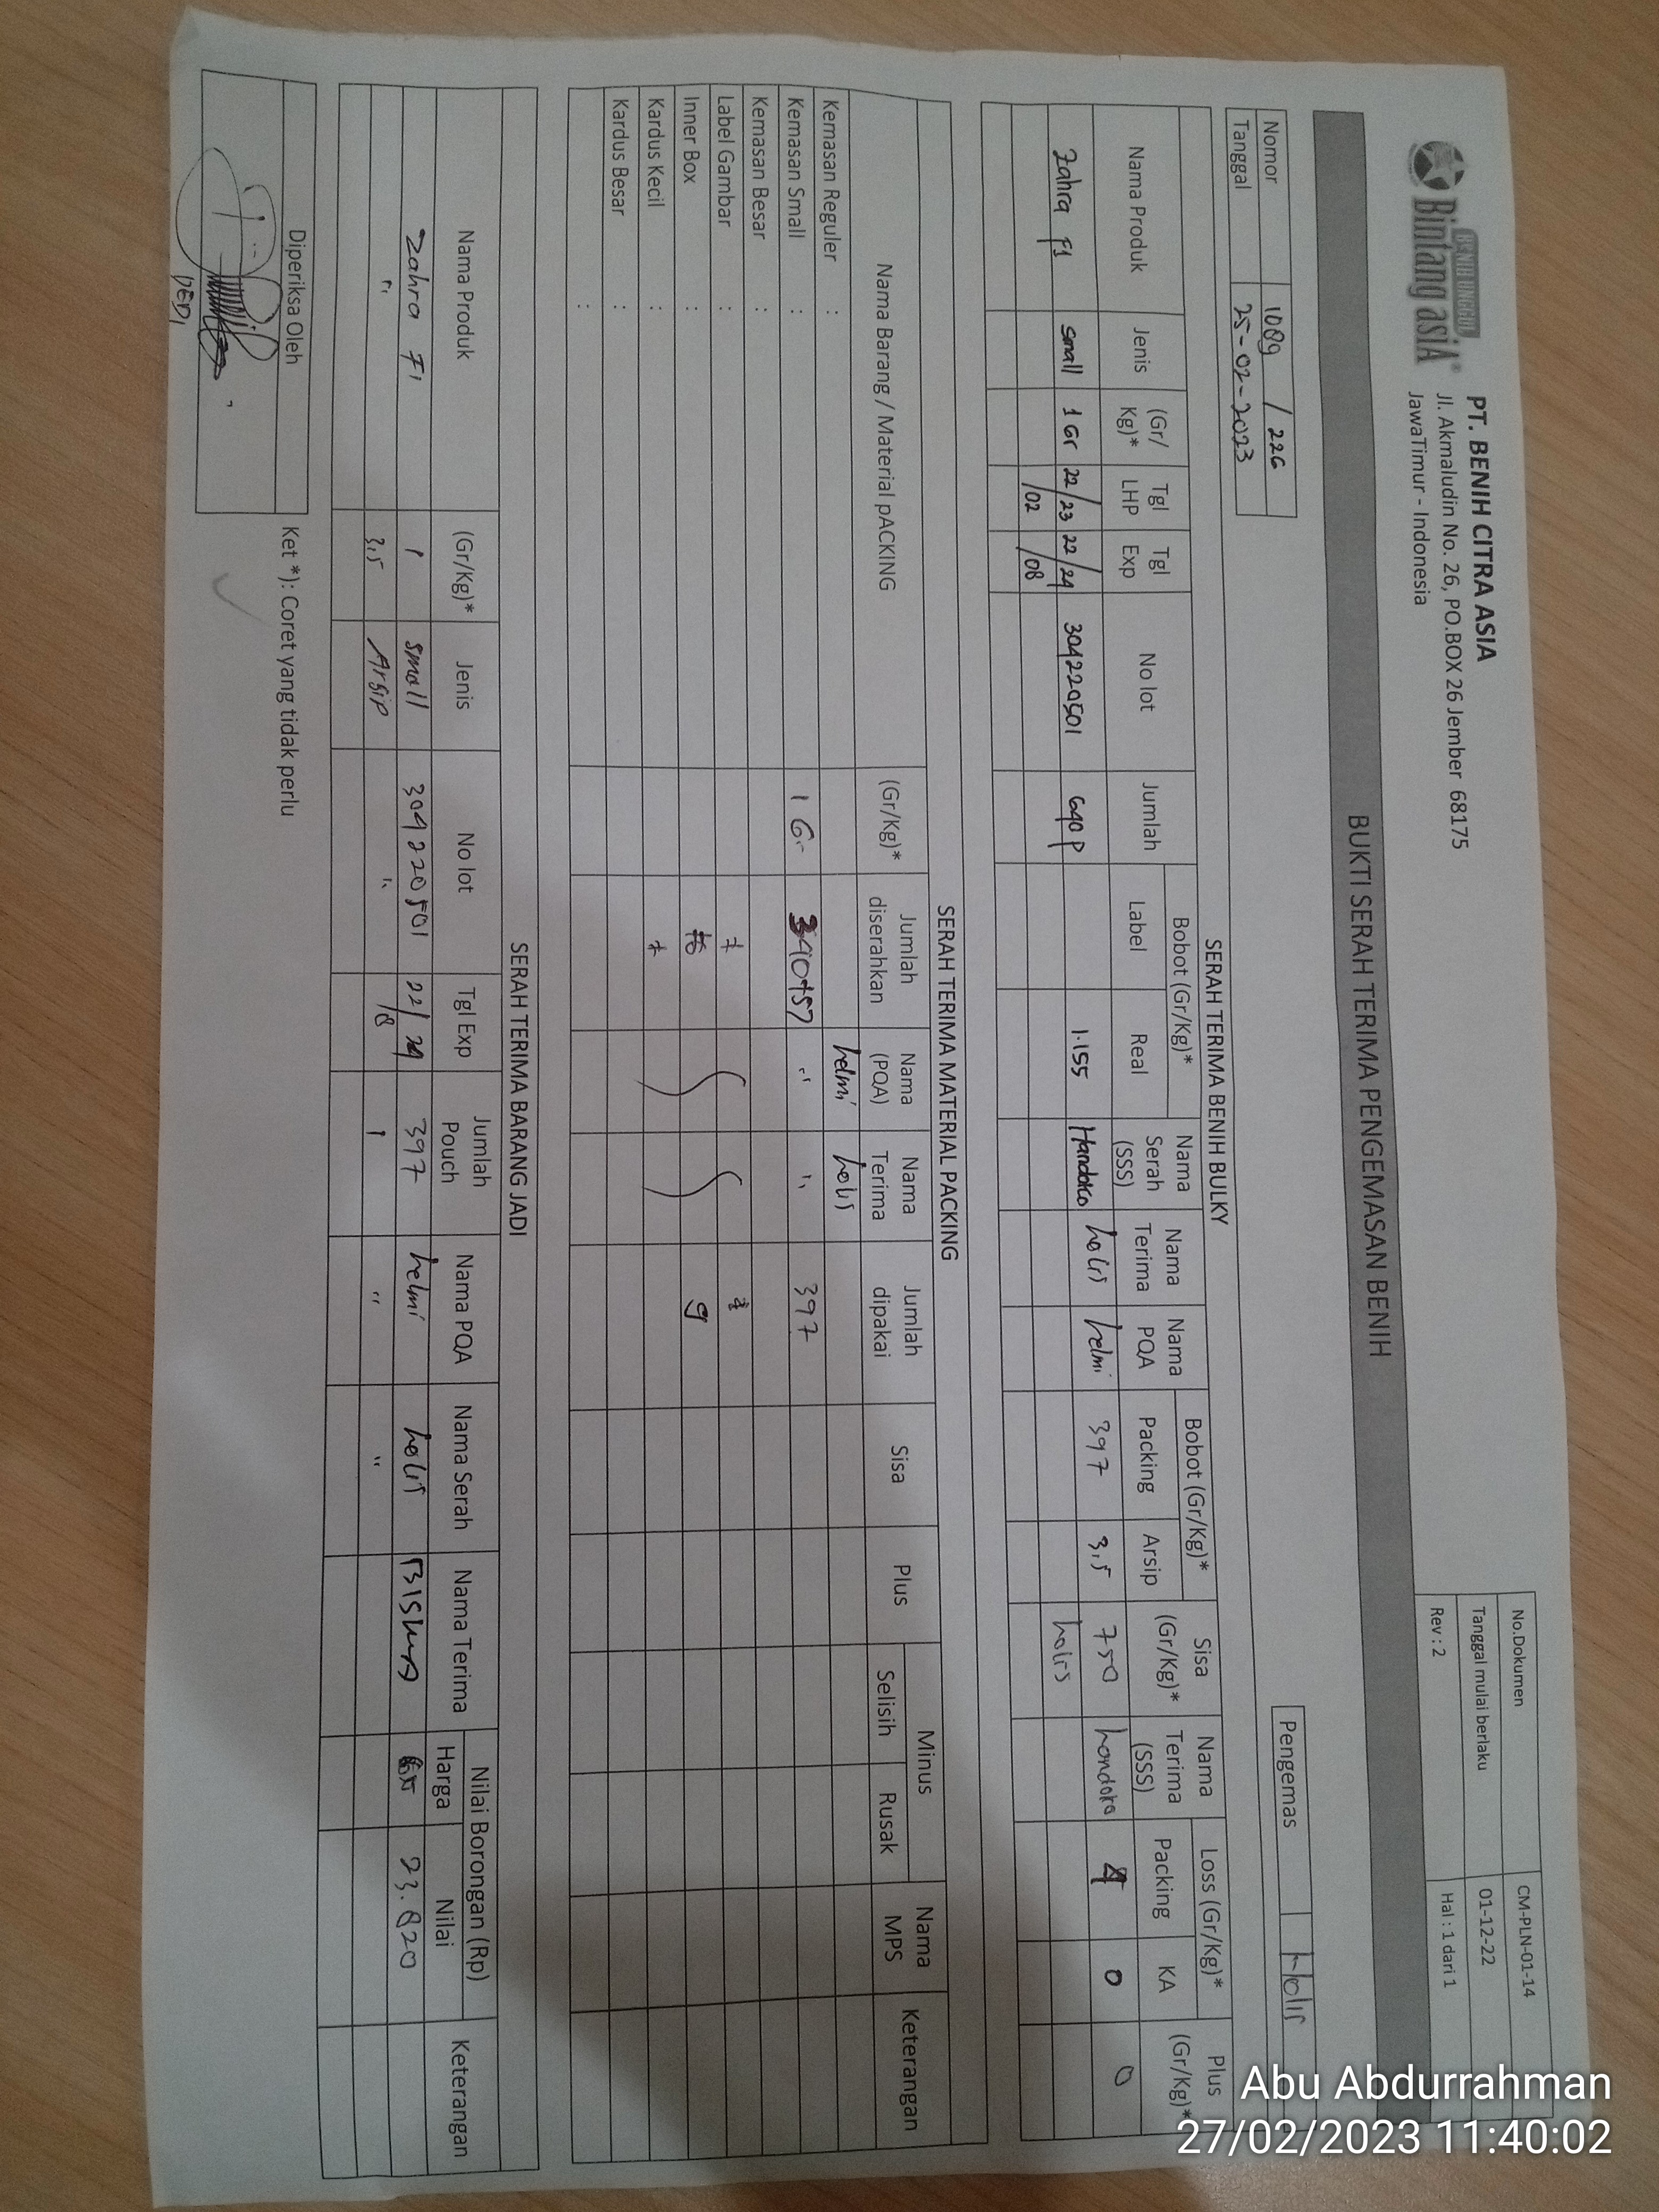 BENIH UNGGUL
Bintang asiA®
PT. BENIH CITRA ASIA
Jl. Akmaludin No. 26, PO.BOX 26 Jember 68175
JawaTimur - Indonesia
No.Dokumen CM-PLN-01-14
Tanggal mulai berlaku 01-12-22
Rev : 2 Hal : 1 dari 1
BUKTI SERAH TERIMA PENGEMASAN BENIH
Nomor 1089 / 226
Tanggal 25-02-2023
Pengemas Holis
SERAH TERIMA BENIH BULKY
Nama Produk Jenis (Gr/Kg)* Tgl LHP Tgl Exp No lot Jumlah Bobot (Gr/Kg)* Label Real Nama Serah (SSS) Nama Terima Nama PQA Bobot (Gr/Kg)* Packing Arsip Sisa (Gr/Kg)* Nama Terima (SSS) Loss (Gr/Kg)* Packing KA Plus (Gr/Kg)*
Zahra F1 small 1 Gr 22/23 22/24 304220501 640 P 1.155 Handoko holis helmi 397 3,5 750 handoko 0 0
/02 /08 holis
SERAH TERIMA MATERIAL PACKING
Nama Barang / Material pACKING (Gr/Kg)* Jumlah diserahkan Nama (PQA) Nama Terima Jumlah dipakai Sisa Plus Minus Selisih Rusak Nama MPS Keterangan
Kemasan Reguler : helmi holis
Kemasan Small : 1 Gr " " 397
Kemasan Besar :
Label Gambar :
Inner Box : 9
Kardus Kecil :
Kardus Besar :
:
SERAH TERIMA BARANG JADI
Nama Produk (Gr/Kg)* Jenis No lot Tgl Exp Jumlah Pouch Nama PQA Nama Serah Nama Terima Nilai Borongan (Rp) Harga Nilai Keterangan
Zahra F1 1 small 304220501 22/24 397 helmi holis 23.820
" 3,5 Arsip " /8 1 " "
Diperiksa Oleh
DEDI
Ket *): Coret yang tidak perlu
Abu Abdurrahman
27/02/2023 11:40:02